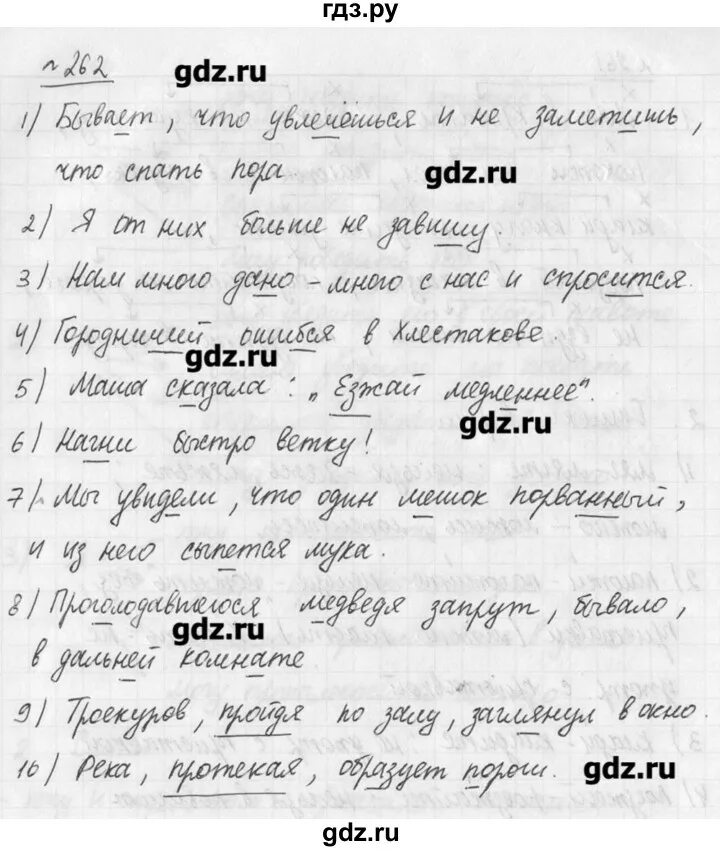 гдз.ру
№ 262
gdz.ru
1) Бывает, что увлечёшься и не заметишь,
что спать пора.
gdz.ru
2) Я от них больше не завишу.
3) Нам много дано – много с нас и спросится.
4) Городничий ошибся в Хлестакове.
gdz.ru
5) Маша сказала: „Езжай медленнее".
gdz.ru
6) Нагни быстро ветку!
7) Мы увидели, что один мешок порванный,
и из него сыпется мука.
8) Проголодавшегося медведя запрут, бывало,
gdz.ru
в дальней комнате.
9) Троекуров, пройдя по залу, заглянул в окно.
10) Река, протекая, образует пороги.
gdz.ru
gdz.ru